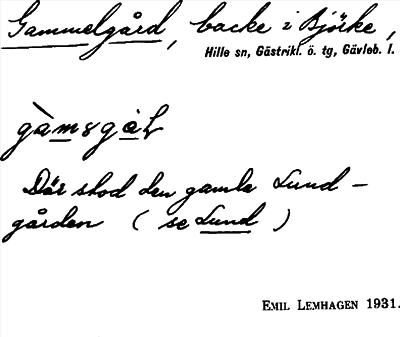 Gammelgård, backe i Björke,
Hille sn, Gästrikl. ö. tg, Gävleb. l.
Där stod den gamla Lund-
gården ( se Lund )
EMIL LEMHAGEN 1931.